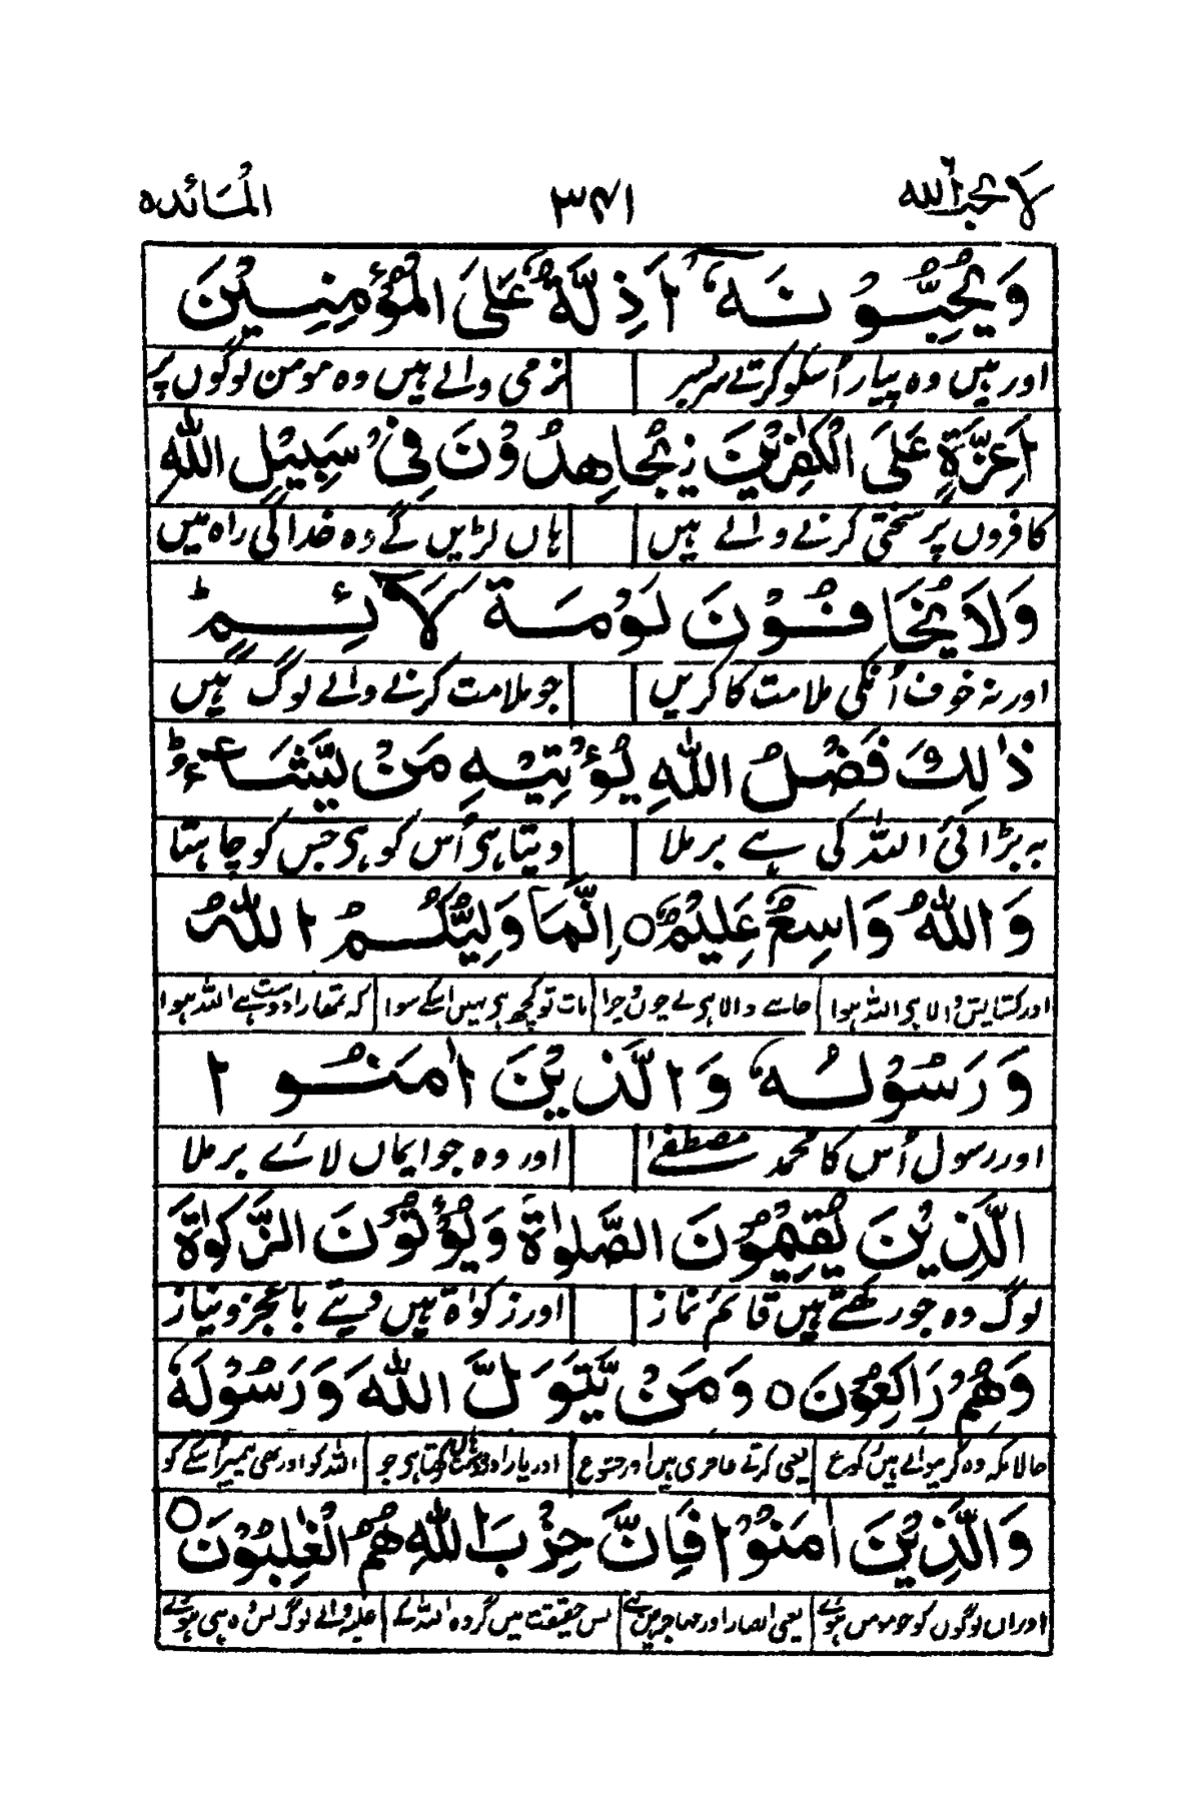 لا يحب الله ۳۴۱ المائده
وَيُحِبُّوْنَهٗۤ اَذِلَّةٍ عَلَى الْمُؤْمِنِيْنَ
اور ہیں وہ پیار اُسکو کرتے سربسر نرمی والے ہیں وہ مومن لوگوں پر
اَعِزَّةٍ عَلَى الْكٰفِرِيْنَ يُجَاهِدُوْنَ فِيْ سَبِيْلِ اللّٰهِ
کافروں پر سختی کرنے والے ہیں ہاں لڑیں گے وہ خدا کی راہ میں
وَلَا يُخَافُوْنَ لَوْمَةَ لَآئِمٍ ط
اور نہ خوف اُنکی ملامت کا کریں جو ملامت کرنے والے لوگ ہیں
ذٰلِكَ فَضْلُ اللّٰهِ يُؤْتِيْهِ مَنْ يَّشَآءُ ط
یہ بڑائی اللہ کی ہے برملا دیتا ہی اُس کو ہی جس کو چاہتا
وَاللّٰهُ وَاسِعٌ عَلِيْمٌ ○ اِنَّمَا وَلِيُّكُمُ اللّٰهُ
اور کشایش والا ہی اللہ ہوا جاننے والا ہی بے چون چرا بات تو کچھ ہی نہیں اسکے سوا کہ تمھارا دوست ہے اللہ ہوا
وَرَسُوْلُهٗ وَالَّذِيْنَ اٰمَنُوا
اور رسول اُس کا محمد مصطفےٰ اور وہ جو ایماں لائے برملا
الَّذِيْنَ يُقِيْمُوْنَ الصَّلٰوةَ وَيُؤْتُوْنَ الزَّكٰوةَ
لوگ وہ جو رکھتے ہیں قائم نماز اور زکوٰۃ ہیں دیتے باعجز و نیاز
وَهُمْ رَاكِعُوْنَ ○ وَمَنْ يَّتَوَلَّ اللّٰهَ وَرَسُوْلَهٗ
حالانکہ وہ کرنیوالے ہیں رکوع یعنی کرتے عاجزی ہیں اور خشوع اور یار دوست رکھتا ہی جو اللہ کو اور بھی پیمبر اُسکے کو
وَالَّذِيْنَ اٰمَنُوْا فَاِنَّ حِزْبَ اللّٰهِ هُمُ الْغٰلِبُوْنَ ○
اور اُن لوگوں کو جو مومن ہوئے یعنی انصار اور مہاجرین سے پس حقیقت میں گروہ اللہ کے غلبہ والے لوگ بس وہ ہی ہوئے